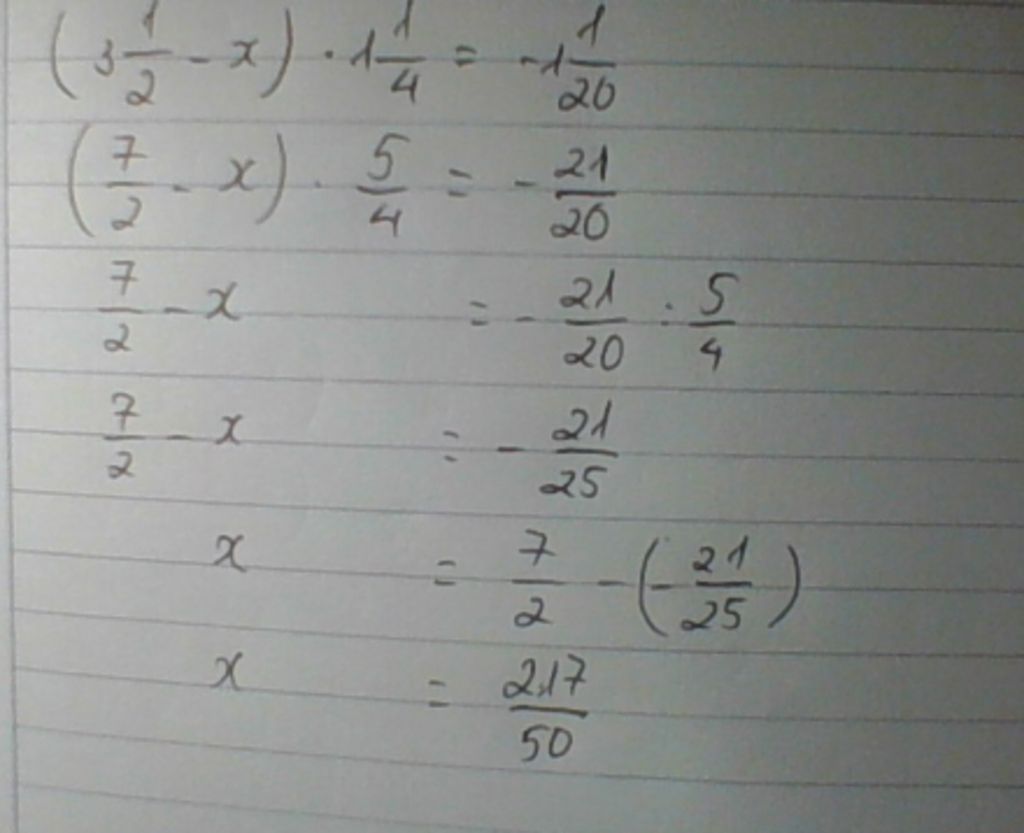 (3 1/2 - x) · 1 1/4 = -1 1/20
(7/2 - x) · 5/4 = - 21/20
7/2 - x = - 21/20 : 5/4
7/2 - x = - 21/25
x = 7/2 - (- 21/25)
x = 217/50